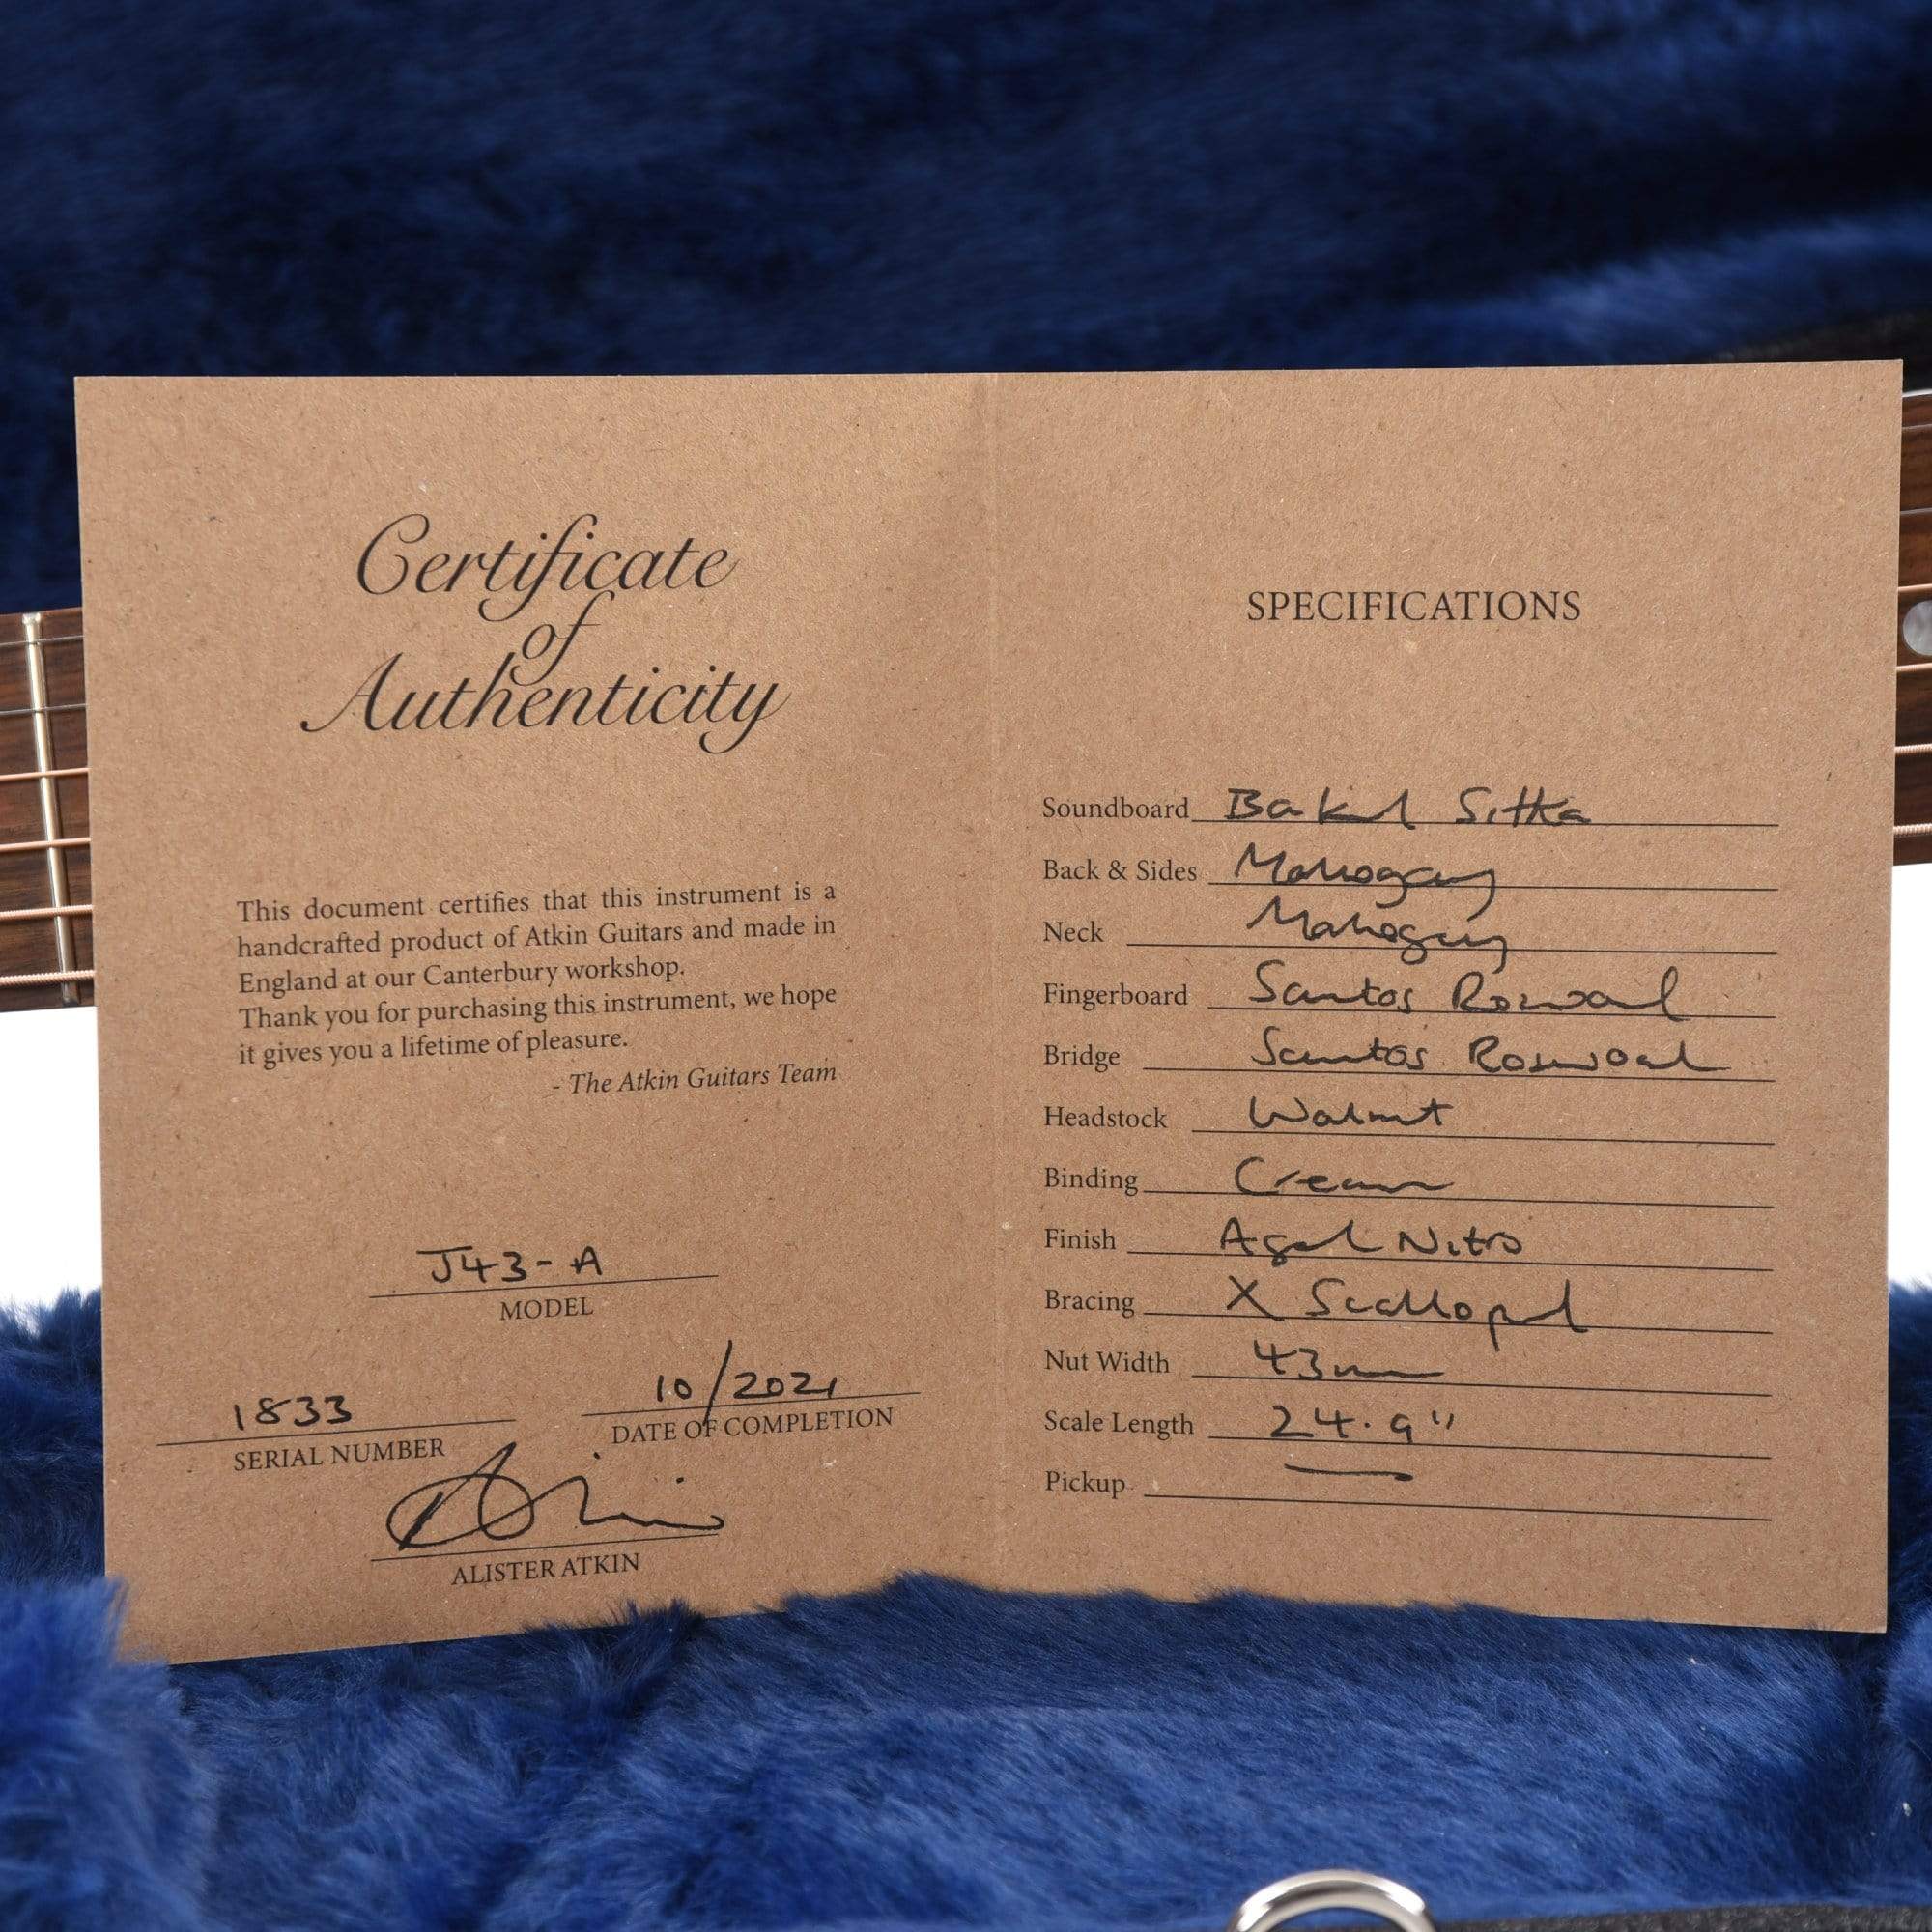 Certificate
of
Authenticity
This document certifies that this instrument is a
handcrafted product of Atkin Guitars and made in
England at our Canterbury workshop.
Thank you for purchasing this instrument, we hope
it gives you a lifetime of pleasure.
- The Atkin Guitars Team
J43-A
MODEL
1833
SERIAL NUMBER
10/2021
DATE OF COMPLETION
ALISTER ATKIN
SPECIFICATIONS
Soundboard Baked Sitka
Back & Sides Mahogany
Neck Mahogany
Fingerboard Santos Rosewood
Bridge Santos Rosewood
Headstock Walnut
Binding Cream
Finish Aged Nitro
Bracing X Scalloped
Nut Width 43mm
Scale Length 24.9"
Pickup —